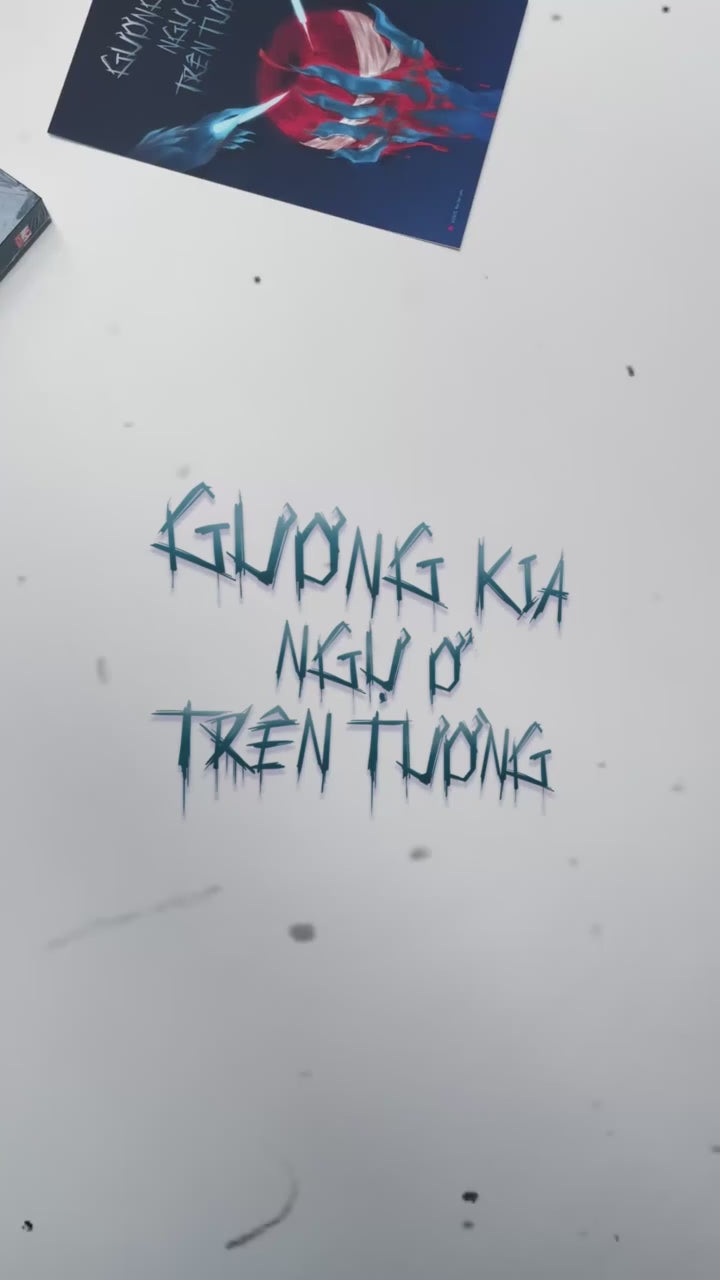 GƯƠNG
NGỰ Ở
TRÊN TƯƠ
GƯƠNG KIA
NGỰ Ở
TRÊN TƯỜNG